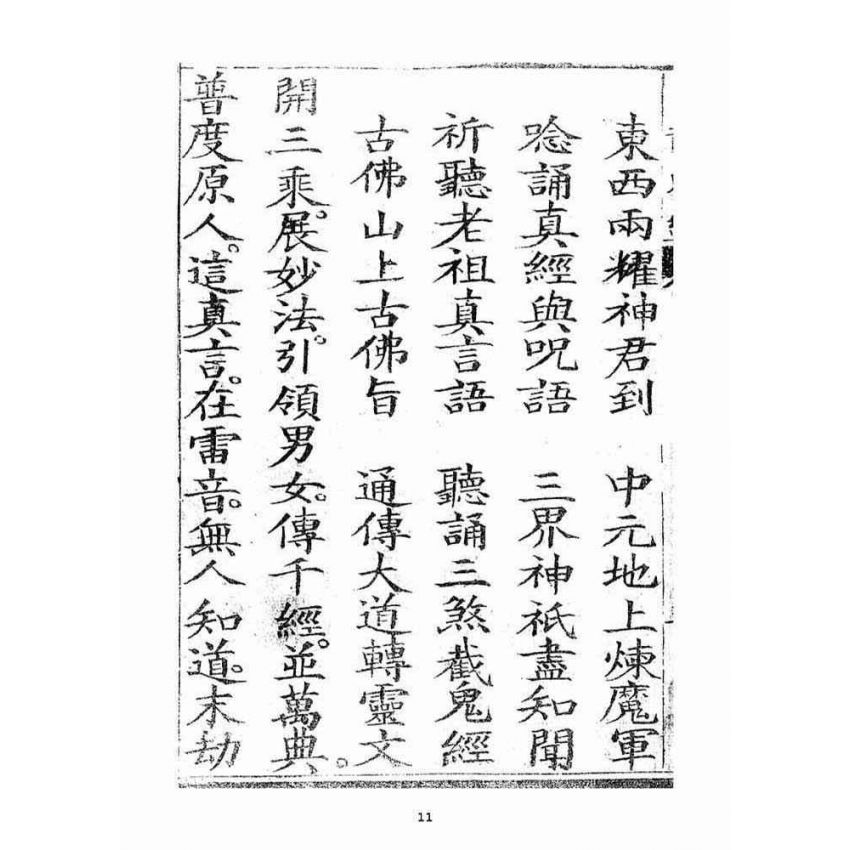 東西兩耀神君到　中元地上煉魔軍
唸誦真經與咒語　三界神祇盡知聞
祈聽老祖真言語　聽誦三煞截鬼經
古佛山上古佛旨　通傳大道轉靈文
開三乘。展妙法。引領男女。傳千經。並萬典。
普度原人。這真言。在雷音。無人知道。末劫
11